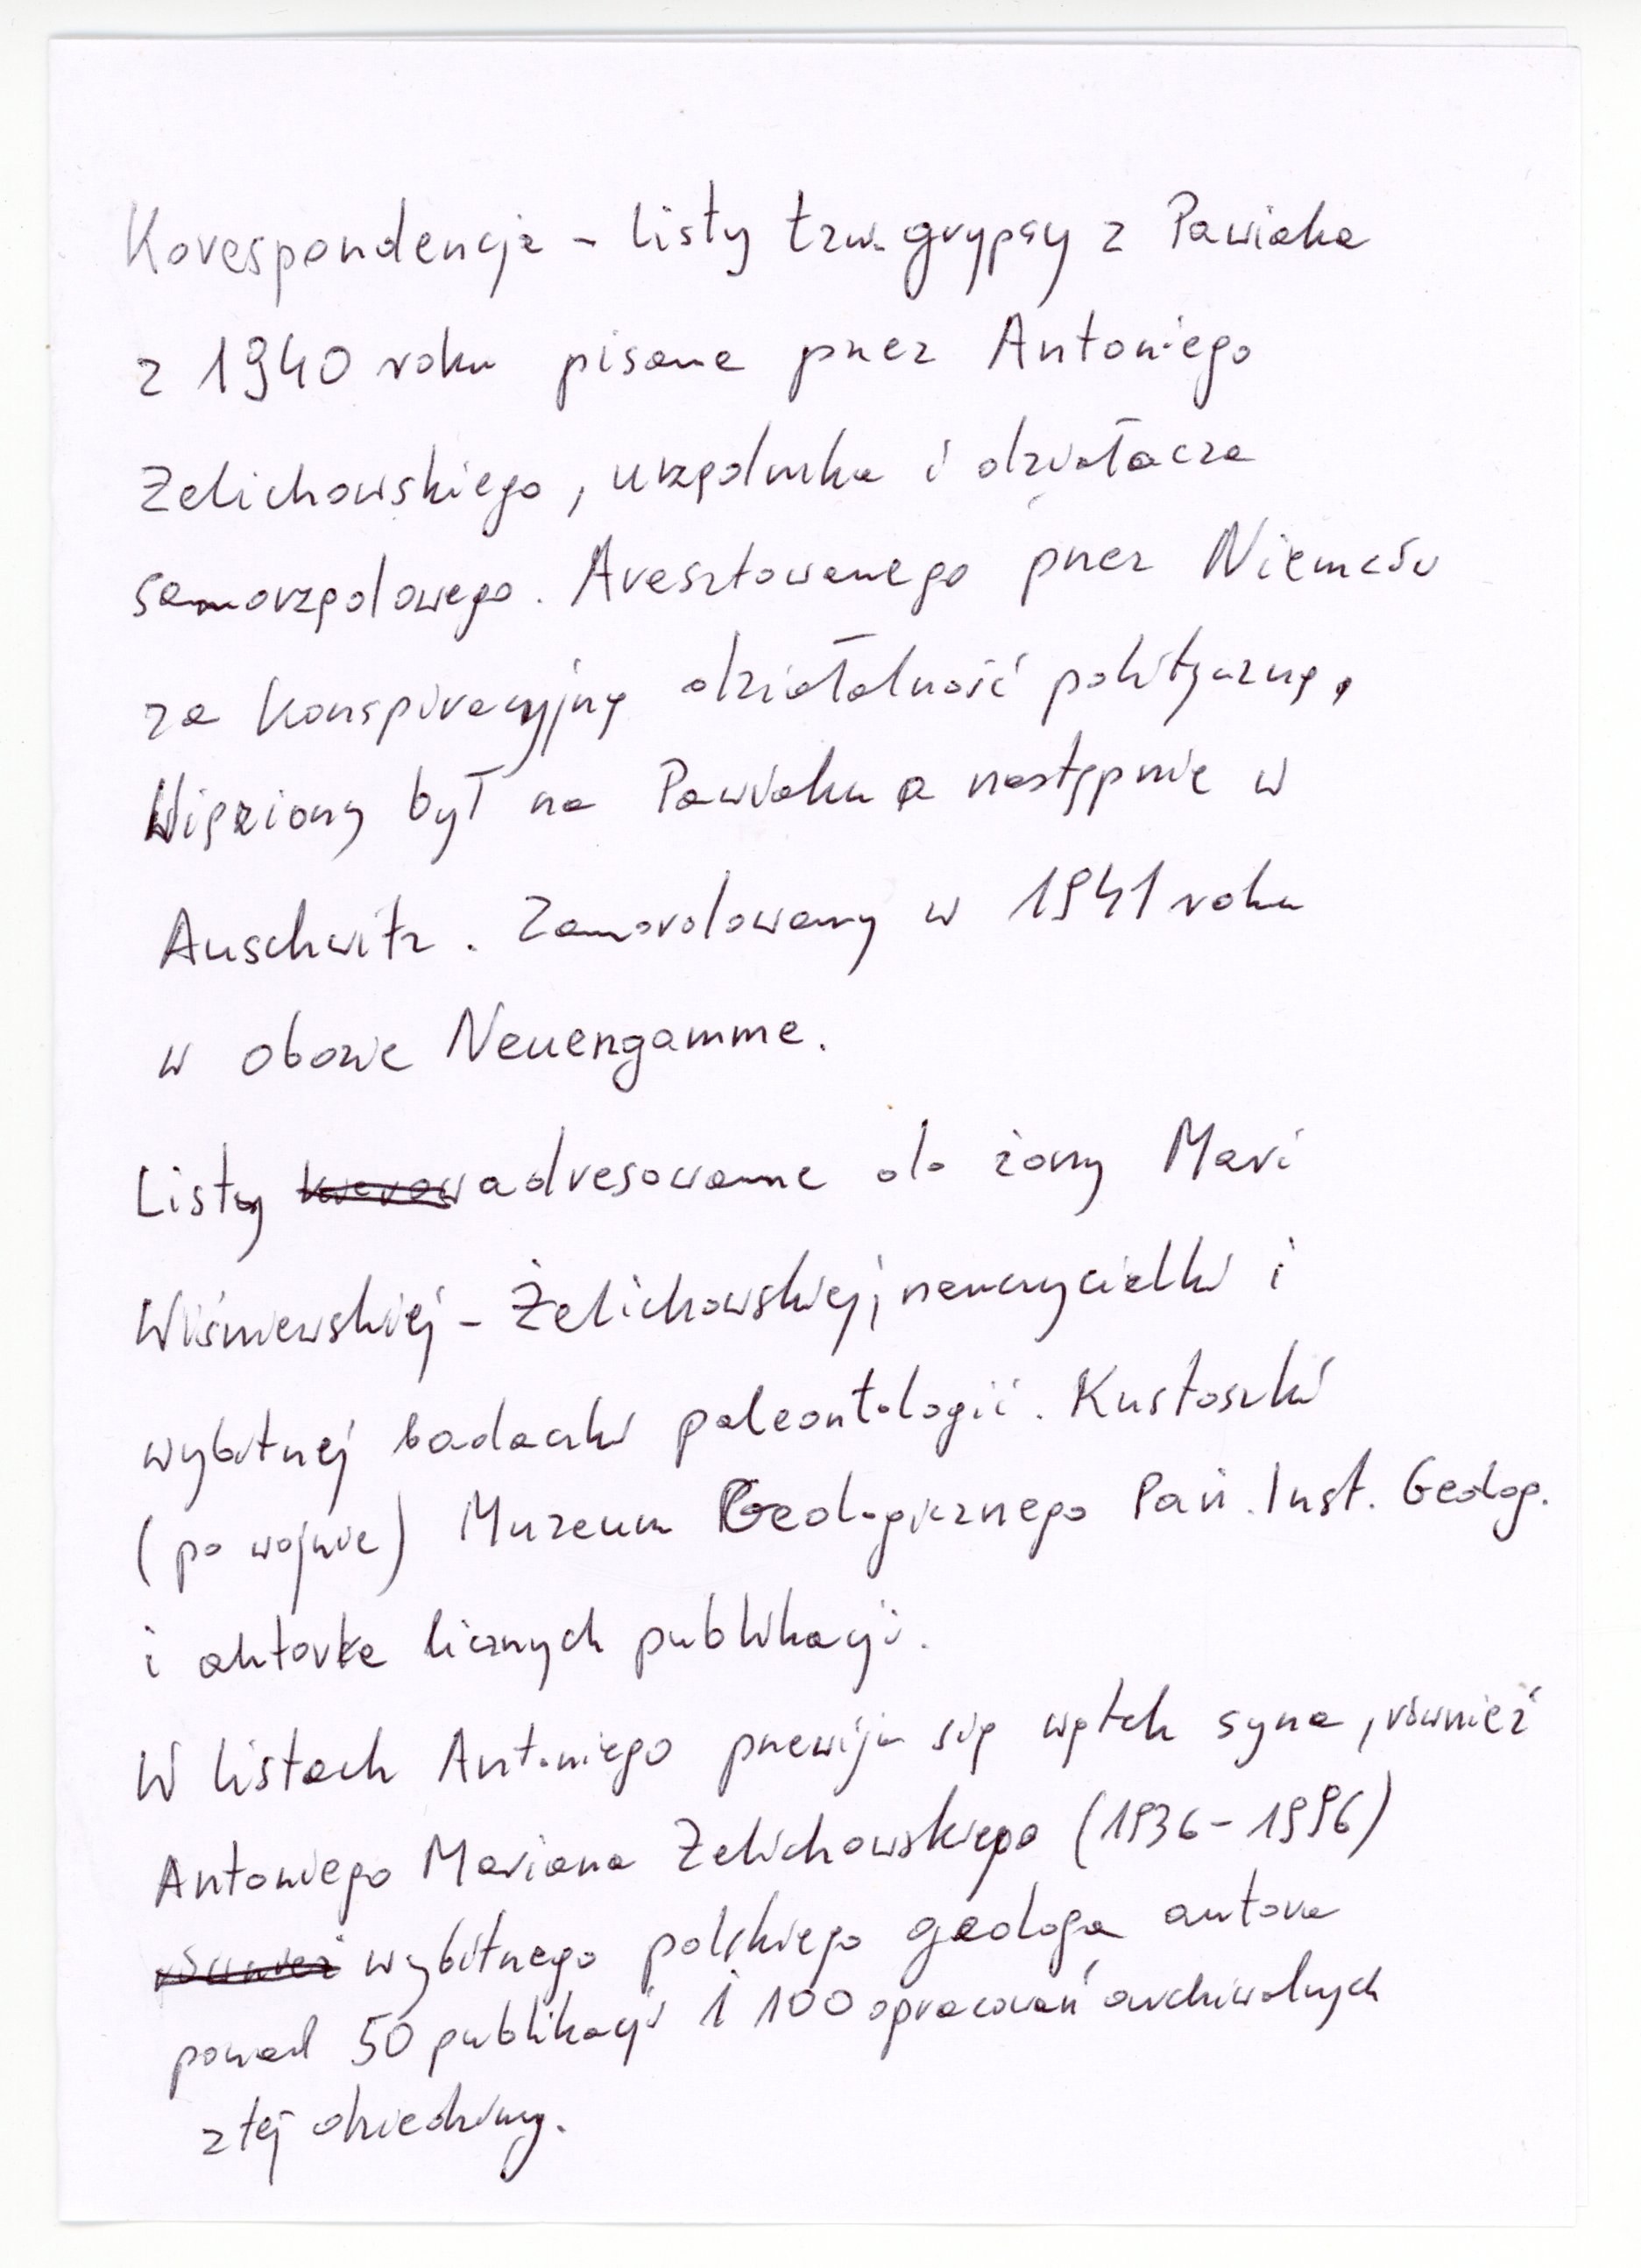 Korespondencja - listy tzw. grypsy z Pawiaka
z 1940 roku pisane przez Antoniego
Żelichowskiego, urzędnika i działacza
samorządowego. Aresztowanego przez Niemców
za konspiracyjną działalność polityczną,
Więziony był na Pawiaku a następnie w
Auschwitz. Zamordowany w 1941 roku
w obozie Neuengamme.
Listy adresowane do żony Mari
Wiśniewskiej - Żelichowskiej, nauczycielki i
wybitnej badaczki paleontologii. Kustoszki
(po wojnie) Muzeum Geologicznego Pań. Inst. Geolog.
i aktorka licznych publikacji.
W listach Antoniego przewija się wątek syna, również
Antoniego Mariana Żelichowskiego (1936-1996)
również wybitnego polskiego geologa autora
ponad 50 publikacji i 100 opracowań archiwalnych
z tej dziedziny.